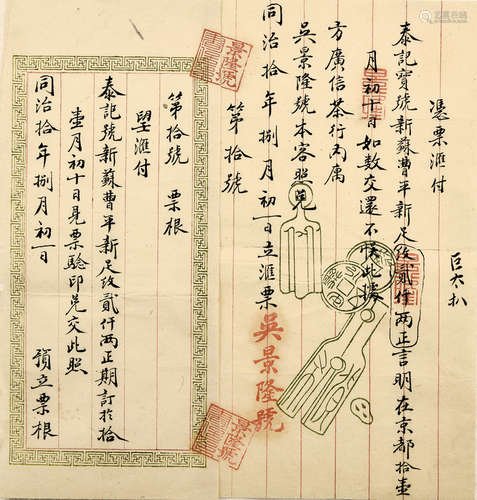 憑票滙付
泰記寶號新蘇曹平新足紋貳仟两正言明在京都拾壹
月初十日如数交還不悮此據
方廣信茶行内属
吳景隆號本客照兑
同治拾年捌月初一日立滙票吳景隆號
第拾號
景隆號
第拾號 票根
望滙付
泰記號新蘇曹平新足紋貳仟两正期訂於拾
壹月初十日見票驗印兑交此照
同治拾年捌月初一日 須立票根
景隆號